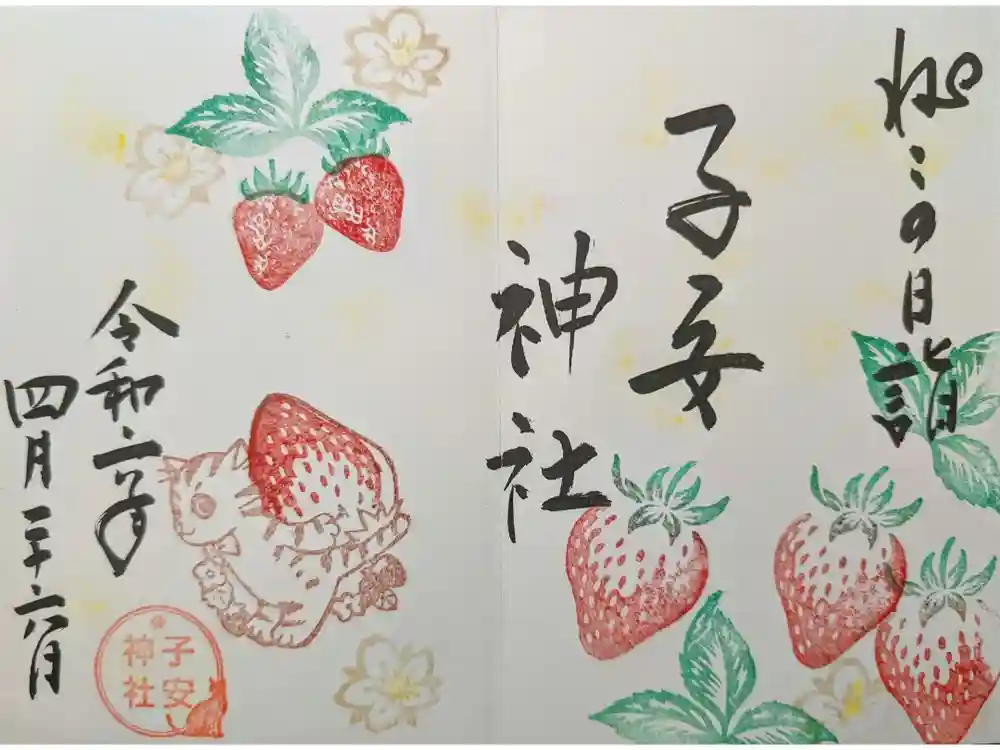 ねこの日詣
子安
神社
令和六年
四月二十六日
子安
神社